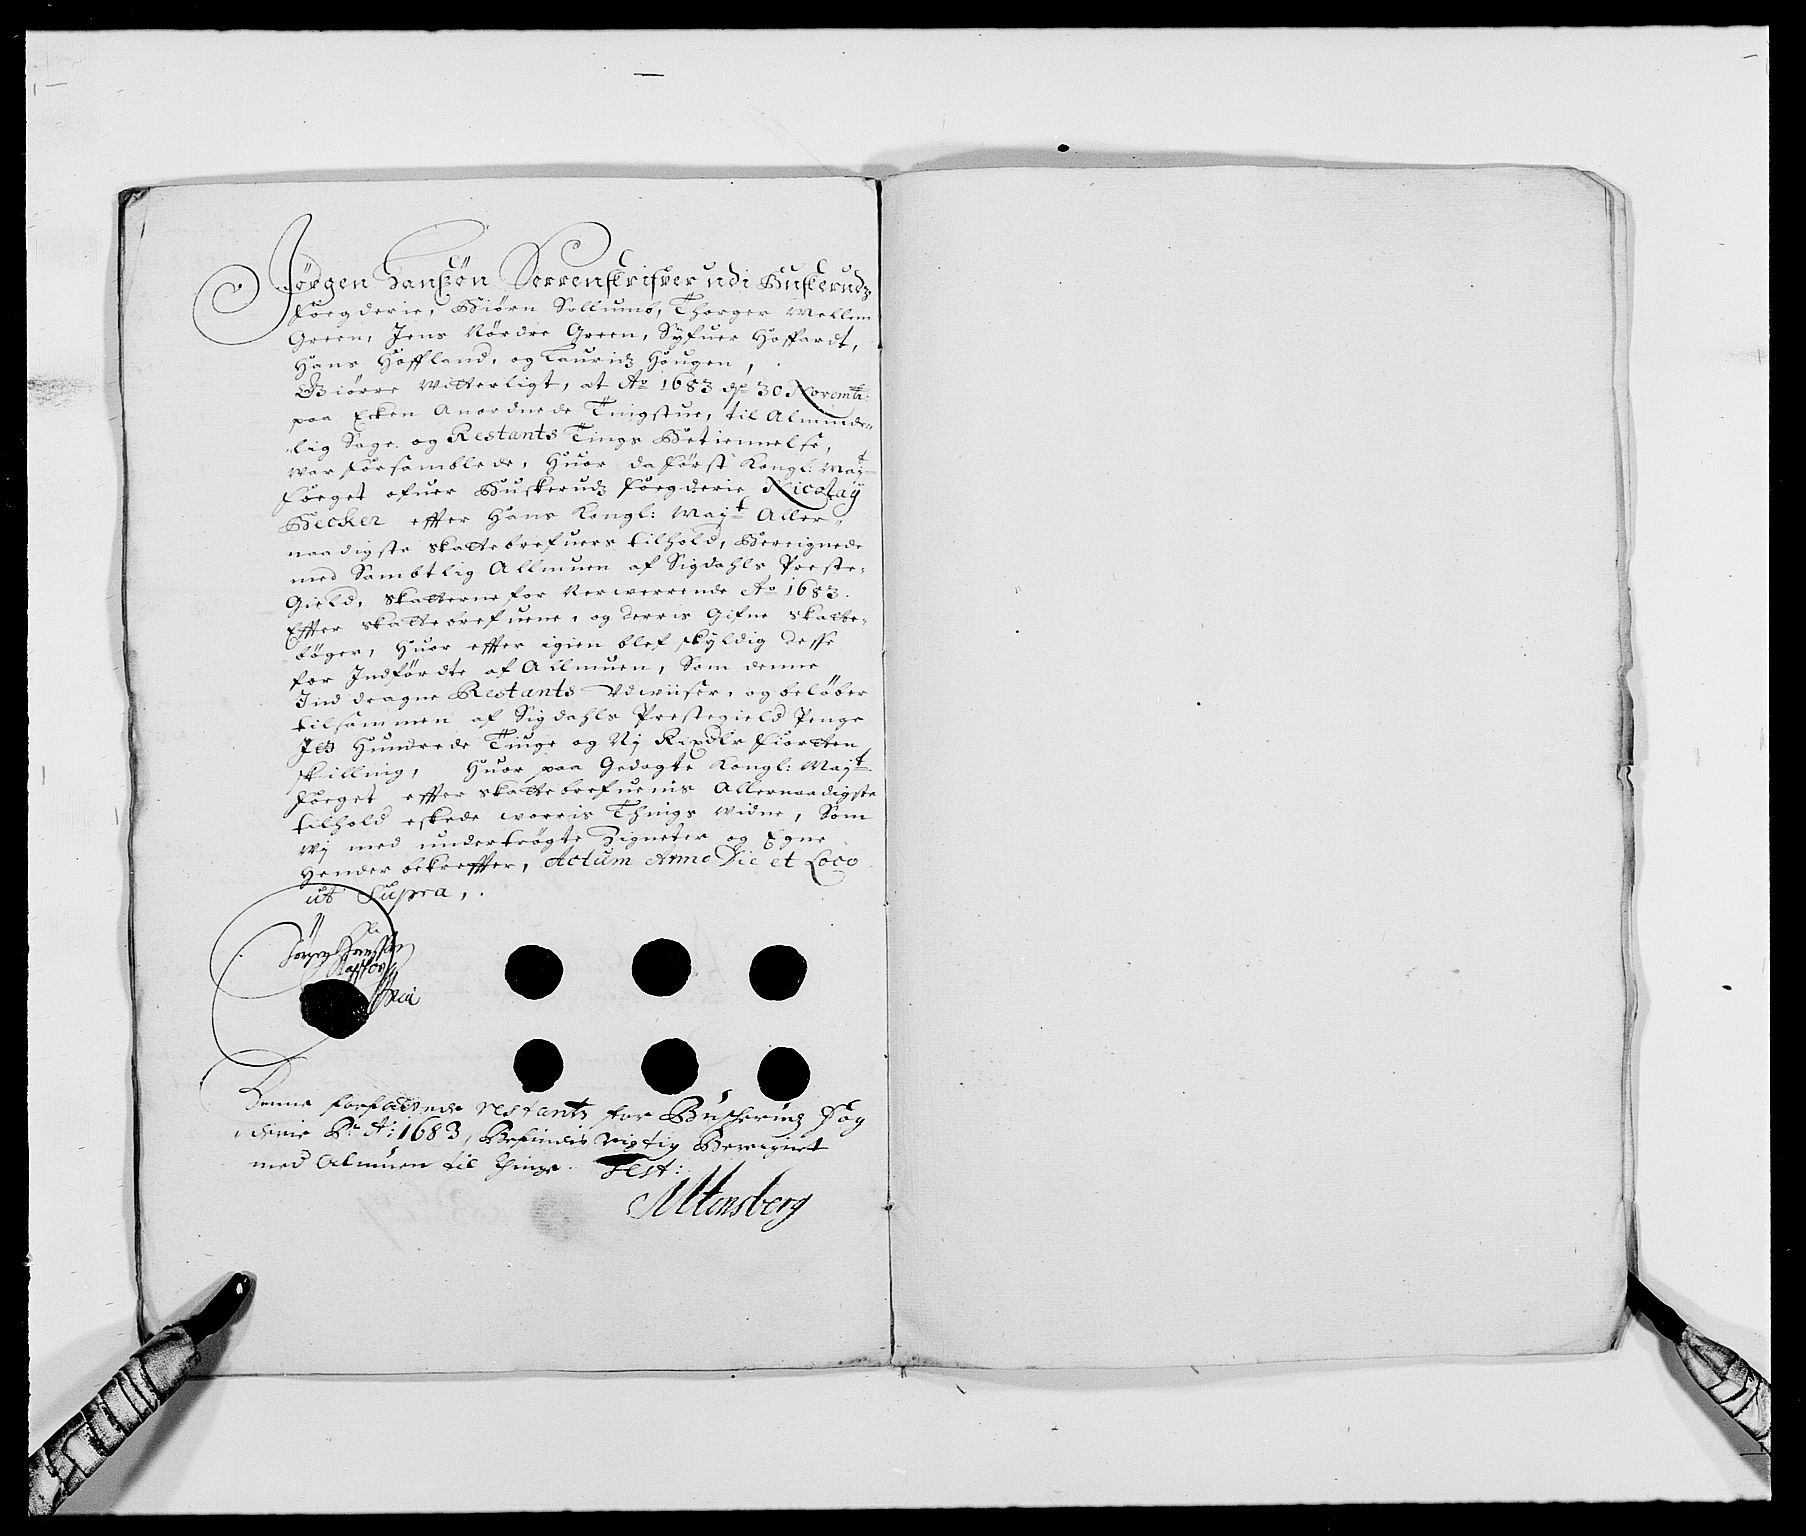 Jørgen Hanßøn Sorrenskrifver udi Buskeruds
Foegderie, Biørn Sollumb, Thorger Mellem
Green, Jens Nørdre Green, Syfuer Hoffardt,
Hans Hoffland, og Lauridz Hougen,
Giørre Witterligt, at Ao 1683 dend 30 Novemb:
paa Ecken Anordnede Tingstue, til Alminde„
„lig Sage og Restants Tings Betiennelse,
war forsamblede, Huor da først Kongl: Mayts
Foeget ofuer Buskerudz Foegderie Nicolay
Becker effter Hans Kongl: Mayts Aller„
naadigste Skattebrefuers tilhold, Bereignede
med Sambtlig Allmuen af Sigdahls Preste„
Gield, Skatterne for Nerwerrende Ao 1683.
Effter Skattebrefuene, og derris Gifne Skatte„
bøger, Huor effter igien blef skyldig desse
for Indførdte af Allmuen, Som denne
Inddragne Restants Udwiiser, og beløber
tilsammen af Sigdahls Prestegield Penge
Jet Hundrede Tiuge og Nj Rixdlr Fiortten
skilling, Huor paa Gedagte Kongl: Mayts
Foeget effter Skattebrefuenis Allernaadigste
tilhold eskede worris Things Widne, Som
wj med undertrøgte Zigneter og Egne
Hender bekreffter, Actum Anno Die et Loco
ut Supra,
Jørgen Hansßøn
Denne forfattende restants for Buscherudz Fog
„derie Pro Ao: 1683, Befindis rigtig Beregnet
med Almuen til Tinge. Test:
Altensberg